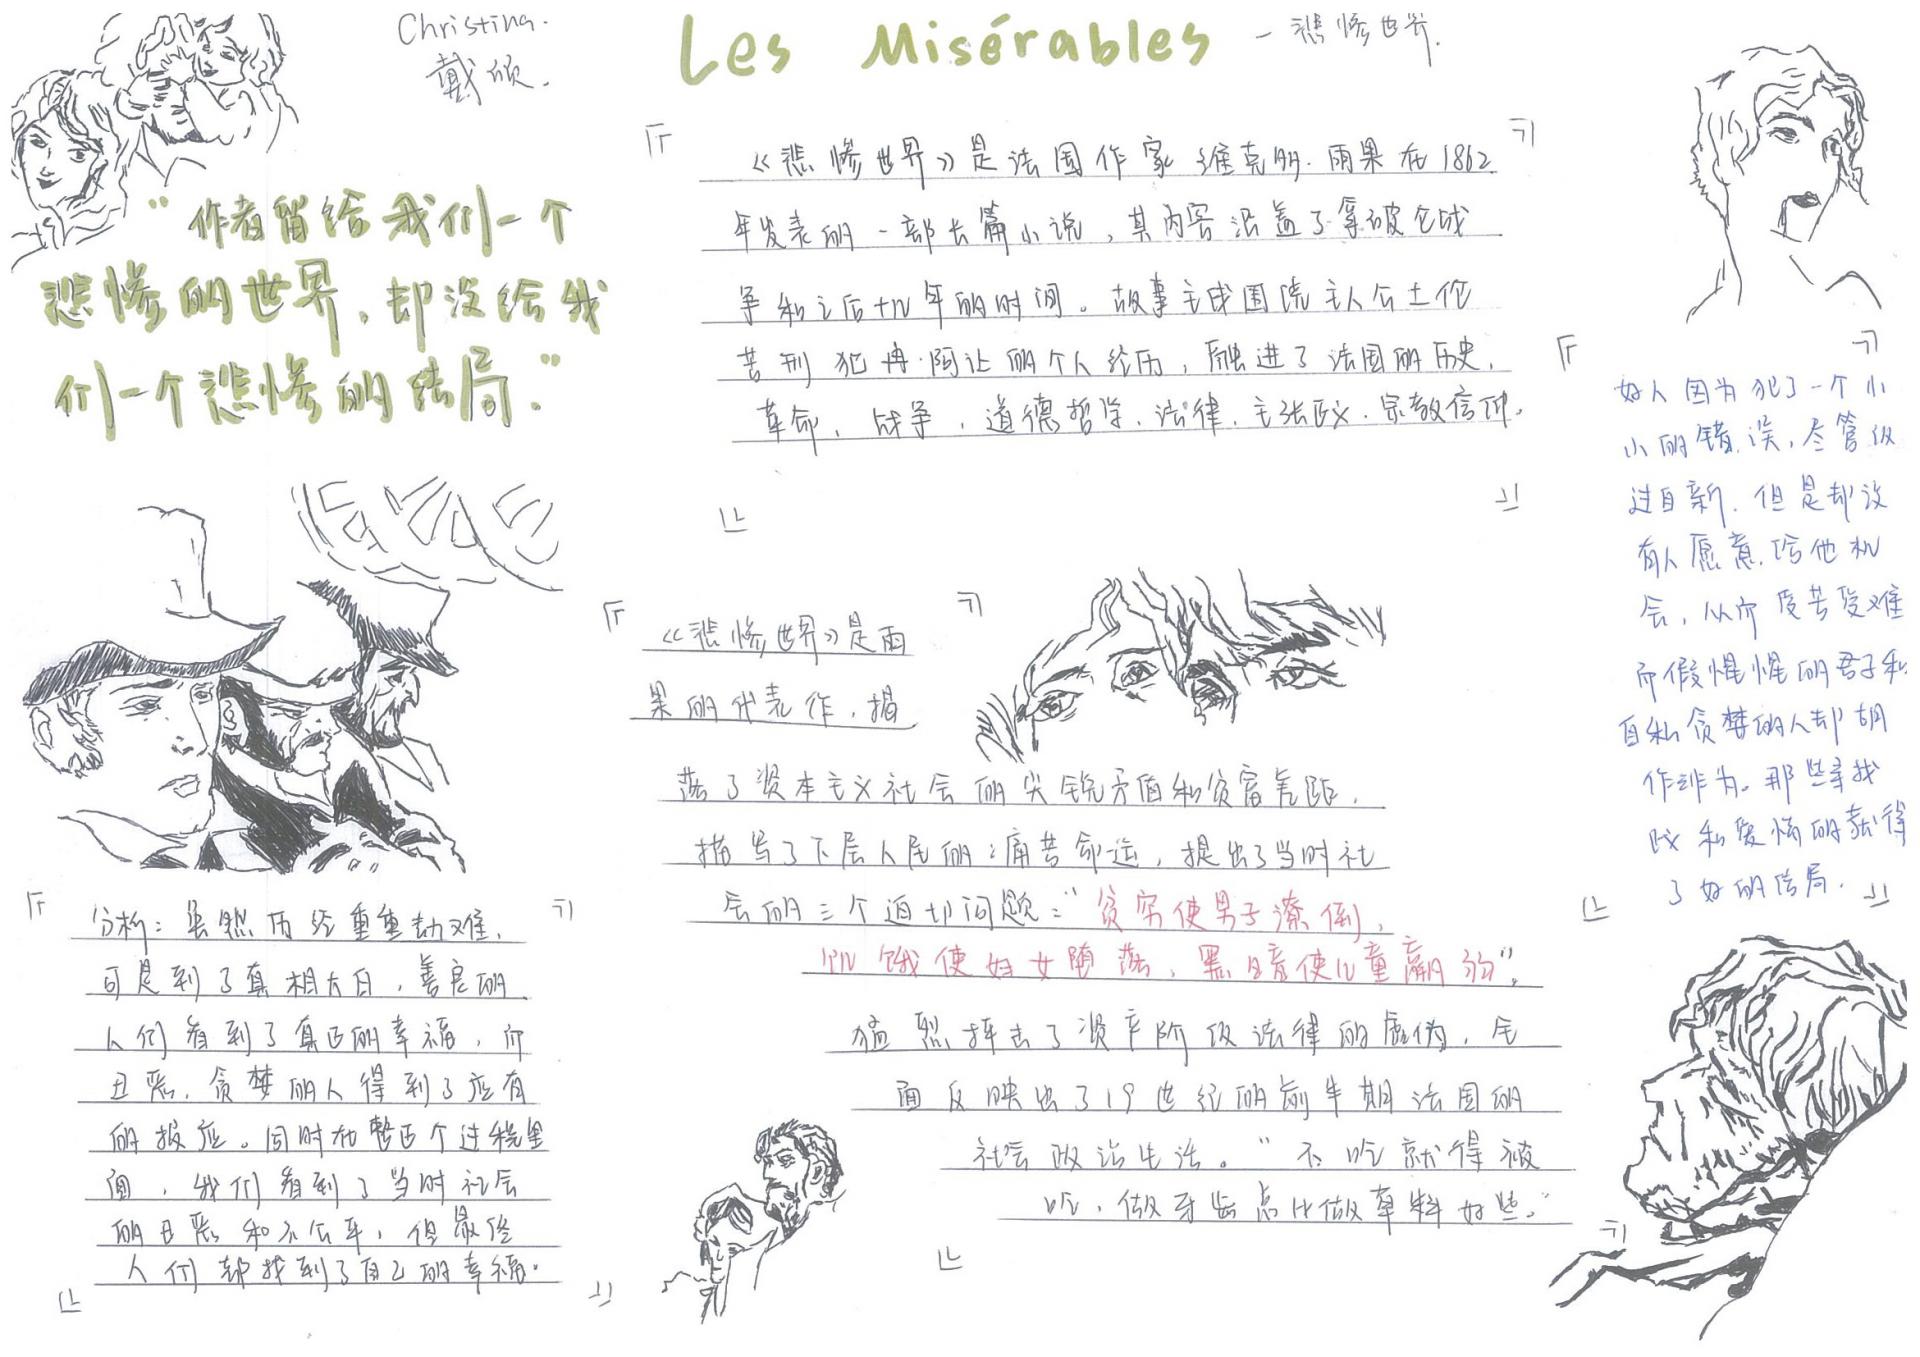 Christina.
戴欣.
Les Misérables - 悲惨世界.
"作者留给我们一个
悲惨的世界，却没给我
们一个悲惨的结局."
《悲惨世界》是法国作家维克多·雨果在1862
年发表的一部长篇小说，其内容涵盖了拿破仑战
争和之后十几年的时间。故事主线围绕主人公土伦
苦刑犯冉·阿让的个人经历，融进了法国的历史、
革命、战争、道德哲学、法律、主张正义、宗教信仰.
好人因为犯了一个小
小的错误，尽管改
过自新，但是却没
有人愿意给他机
会，从而受苦受难
而假惺惺的君子和
自私贪婪的人却胡
作非为。那些寻找
和爱情的就得
了好的结局.
《悲惨世界》是雨
果的代表作，揭
落了资本主义社会的尖锐矛盾和贫富差距，
描写了下层人民的痛苦命运，提出了当时社
会的三个迫切问题："贫穷使男子潦倒，
饥饿使妇女堕落，黑暗使儿童羸弱"，
猛烈抨击了资产阶级法律的虚伪，全
面反映出了19世纪的前半期法国的
社会政治生活。"不吃就得被
吃，做牙齿总比做草料好些."
分析：虽然历经重重劫难，
可是到了真相大白，善良的
人们看到了真正的幸福，而
丑恶、贪婪的人得到了应有
的报应。同时在整个过程里
面，我们看到了当时社会
的丑恶和不公平，但最终
人们都找到了自己的幸福.